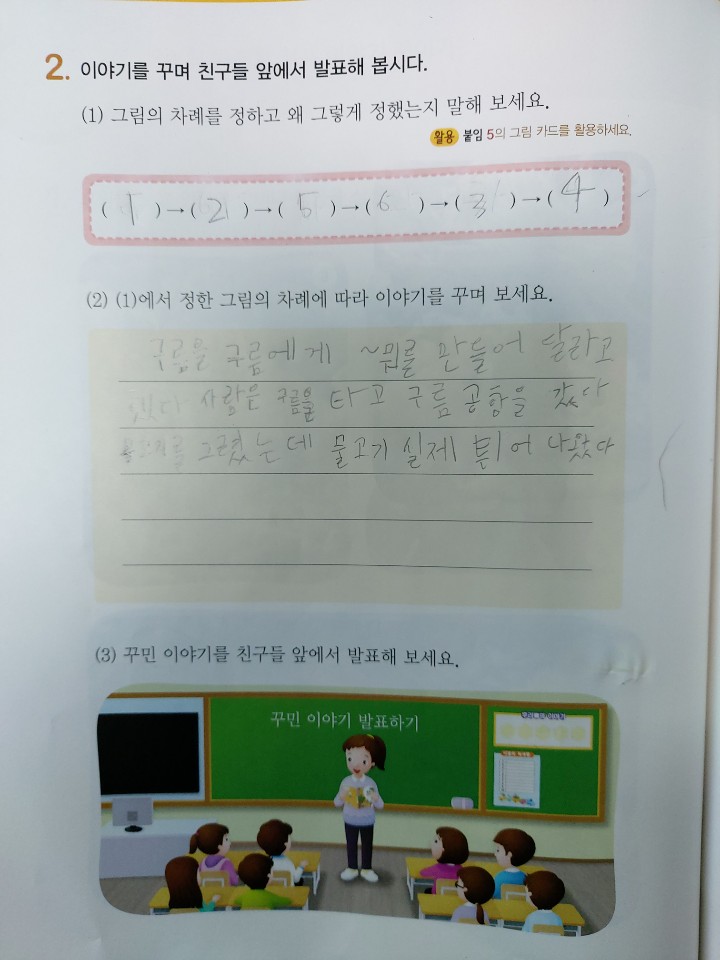 2. 이야기를 꾸며 친구들 앞에서 발표해 봅시다.
(1) 그림의 차례를 정하고 왜 그렇게 정했는지 말해 보세요.
활용 붙임 5의 그림 카드를 활용하세요.
( 1 )→( 2 )→( 5 )→( 6 )→( 3 )→( 4 )
(2) (1)에서 정한 그림의 차례에 따라 이야기를 꾸며 보세요.
구름을 구름에게 ~뭐를 만들어 달라고
사람은 구름을 타고 구름 공항을 갔다
그렸는데 물고기 실제 튀어 나왔다
(3) 꾸민 이야기를 친구들 앞에서 발표해 보세요.
꾸민 이야기 발표하기